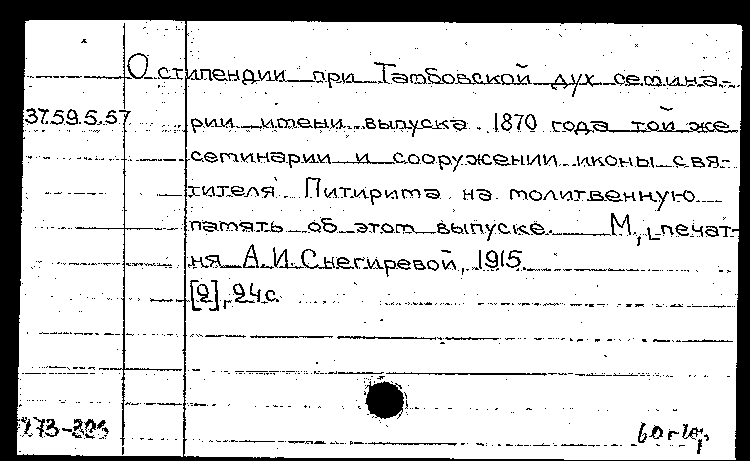 О стипендии при Тамбовской дух семина-
37.59.5.57 рии имени выпуска 1870 года той же
семинарии и сооружении иконы свя-
тителя Питирима на молитвенную
память об этом выпуске. М., печат-
ня А.И.Снегиревой, 1915.
[2], 24с.